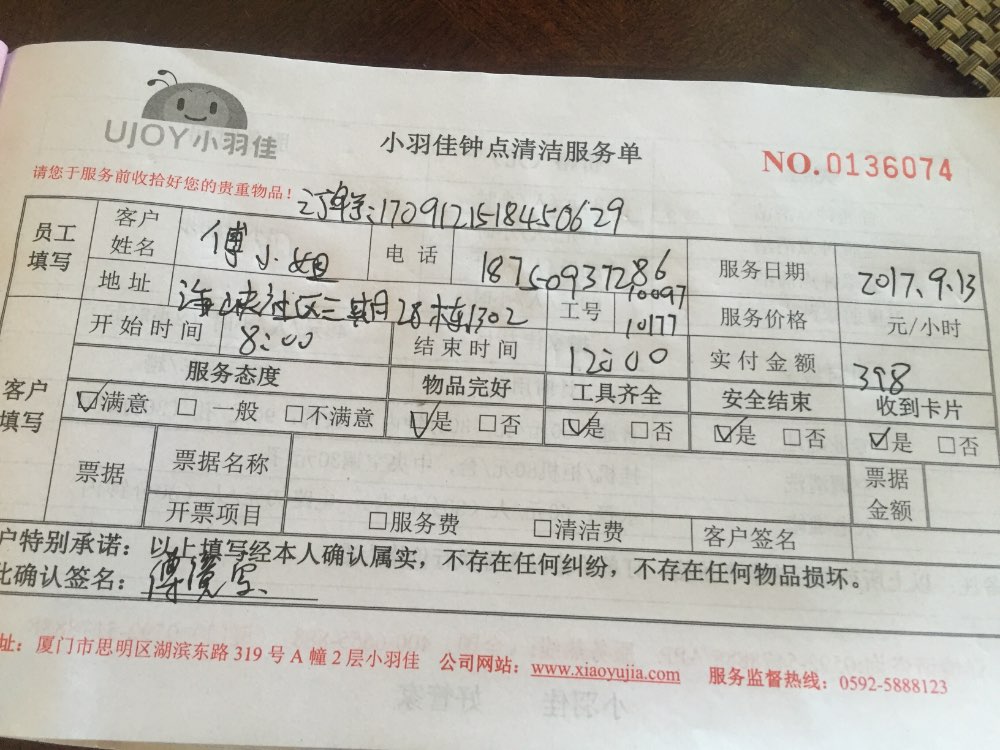 UJOY小羽佳
小羽佳钟点清洁服务单
NO.0136074
请您于服务前收拾好您的贵重物品！
订单号:1709121518450629
员工填写 客户姓名 傅小姐 电话 18750937286 服务日期 2017.9.13
地址 海峡社区三期28栋1302 工号 10097 10177 服务价格 元/小时
开始时间 8:00 结束时间 12:00 实付金额 398
客户填写 服务态度 物品完好 工具齐全 安全结束 收到卡片
☑满意 □一般 □不满意 ☑是 □否 ☑是 □否 ☑是 □否 ☑是 □否
票据 票据名称 票据金额
开票项目 □服务费 □清洁费 客户签名
户特别承诺：以上填写经本人确认属实，不存在任何纠纷，不存在任何物品损坏。
此确认签名：傅
址：厦门市思明区湖滨东路319号A幢2层小羽佳 公司网站：www.xiaoyujia.com 服务监督热线：0592-5888123